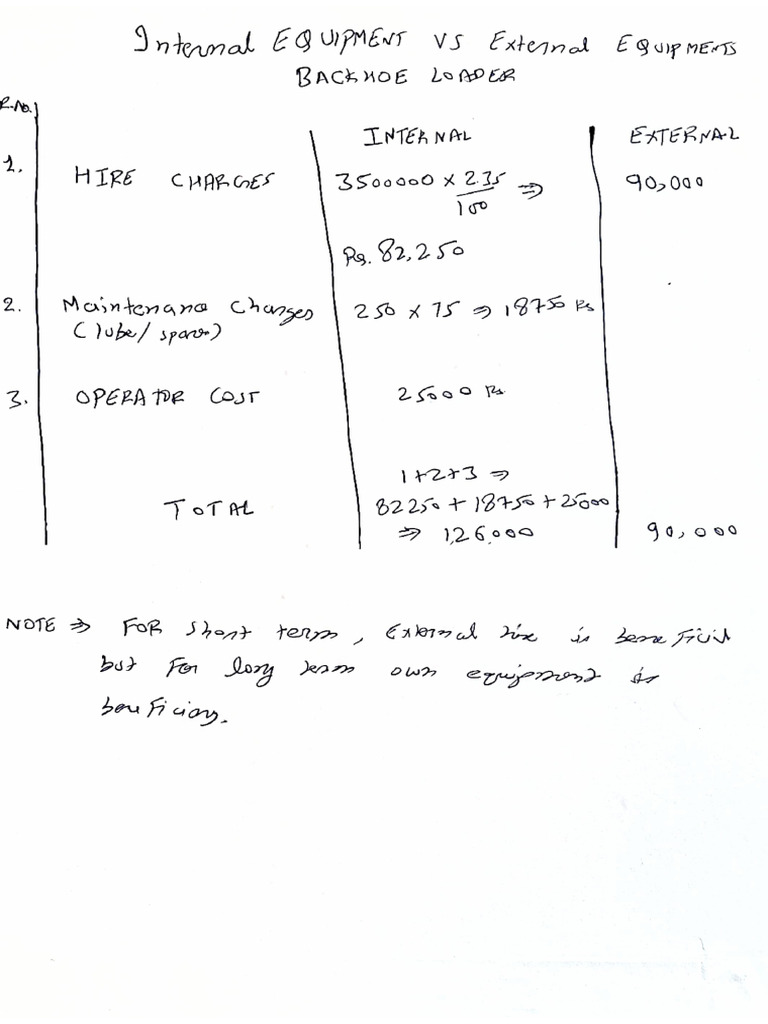 Internal EQUIPMENT VS External EQUIPMENTS
BACKHOE LOADER
INTERNAL EXTERNAL
1. HIRE CHARGES 3500000 × 2.35/100 ⇒ 90,000
Rs. 82,250
2. Maintenance Charges 250 × 75 ⇒ 18750 Rs
(lube/ spares)
3. OPERATOR COST 25000 Rs
1+2+3 ⇒
TOTAL 82250 + 18750 + 25000
⇒ 1,26,000 90,000
NOTE ⇒ FOR Short term, External hire is
but For long term own equipment is